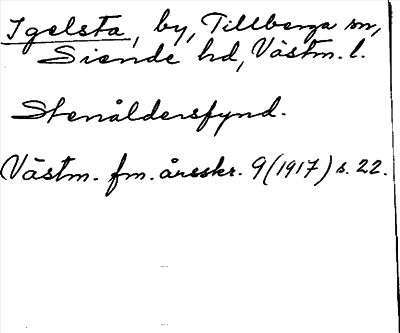 Igelsta, by, Tillberga sn,
Siende hd, Västm. l.
Stenåldersfynd.
Västm. fm. årsskr. 9 (1917) s. 22.